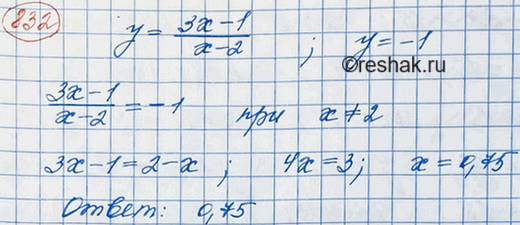 832
y = (3x-1)/(x-2) ; y = -1
©reshak.ru
(3x-1)/(x-2) = -1 при x ≠ 2
3x-1 = 2-x ; 4x = 3; x = 0,75
Ответ: 0,75